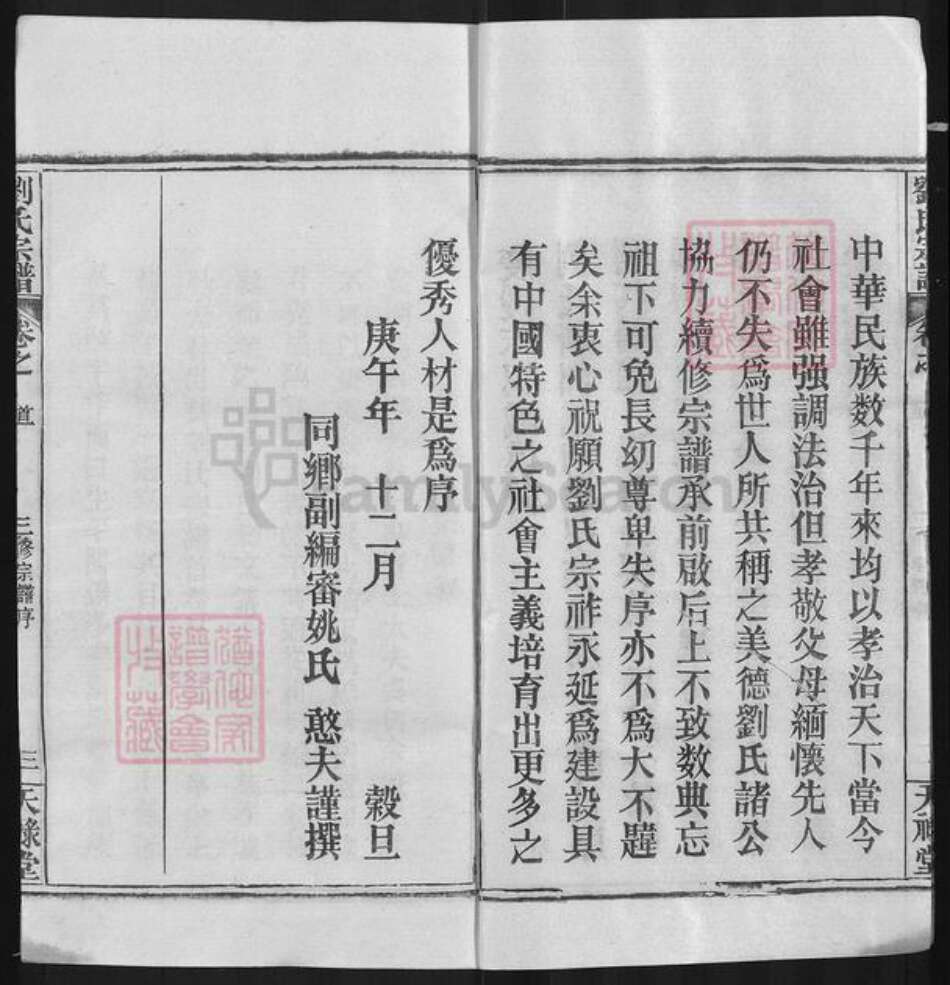 中華民族数千年來均以孝治天下當今
社會雖强調法治但孝敬父母緬懷先人
仍不失爲世人所共稱之美德劉氏諸公
協力續修宗譜承前啟后上不致数典忘
祖下可免長幼尊卑失序亦不爲大不韙
矣余衷心祝願劉氏宗祚永延爲建設具
有中國特色之社會主義培育出更多之
優秀人材是爲序
庚午年 十二月 穀旦
同鄉副編審姚氏 憨夫謹撰
劉氏宗譜 卷之一 道 三修宗譜序 三 天祿堂
FamilySearch